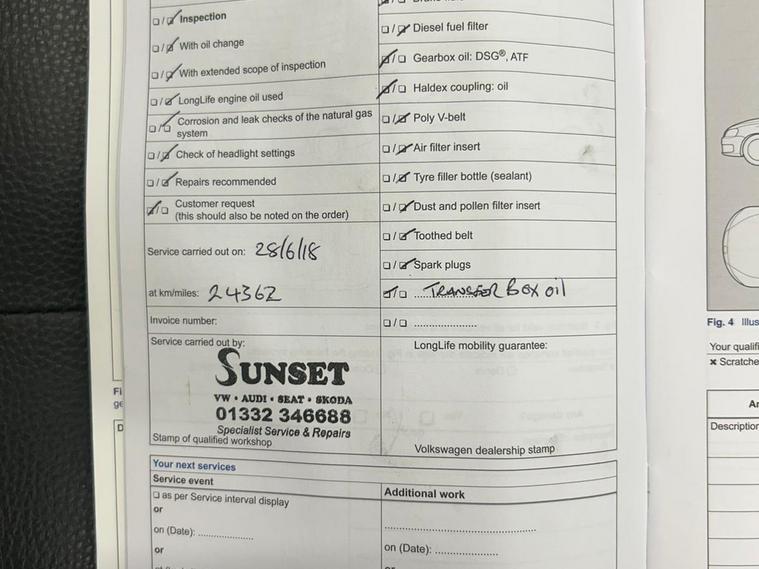 Inspection
With oil change
With extended scope of inspection
LongLife engine oil used
Corrosion and leak checks of the natural gas
system
Check of headlight settings
Repairs recommended
Customer request
(this should also be noted on the order)
Service carried out on: 28/6/18
at km/miles: 24362
Invoice number:
Service carried out by:
SUNSET
VW • AUDI • SEAT • SKODA
01332 346688
Specialist Service & Repairs
Stamp of qualified workshop
Diesel fuel filter
Gearbox oil: DSG®, ATF
Haldex coupling: oil
Poly V-belt
Air filter insert
Tyre filler bottle (sealant)
Dust and pollen filter insert
Toothed belt
Spark plugs
TRANSFER BOX OIL
LongLife mobility guarantee:
Volkswagen dealership stamp
Your next services
Service event
as per Service interval display
or
on (Date): ....................
or
Additional work
on (Date): ....................
Fig. 4 Illus
Your qualifi
Scratche
Description